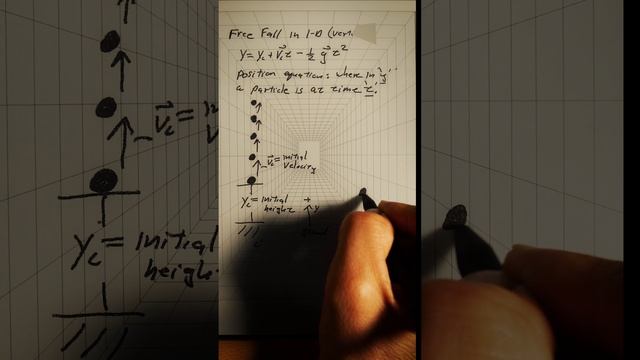 Free Fall in 1-D (vert.
y = yᵢ + v⃗ᵢt − ½ g⃗ t²
Position equation: where in "y"
a particle is at time "t".
v⃗ᵢ = initial
velocity
yᵢ = initial
height
+
y